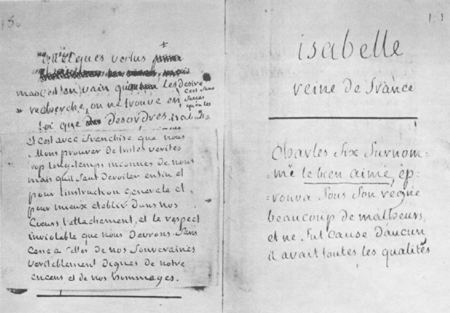 quelques vertus
mais c'est en vain qu' les desire
recherche, on ne trouve en
soi que des desordres.
c'est avec franchise que nous
allons prouver de tristes verites
trop longtems inconnues de nous
mais qu'il faut devoiler enfin et
pour l'instruction generale et
pour mieux etablir dans nos
cœurs l'attachement, et le respect
inviolable que nous devrons sans
cesse a celles de nos souveraines
veritablement dignes de notre
encens et de nos hommages.
isabelle
reine de france
Charles six surnom=
mé le bien aimé, ep=
rouva sous son regne
beaucoup de malheurs,
et ne fut cause d'aucun
il avait toutes les qualités